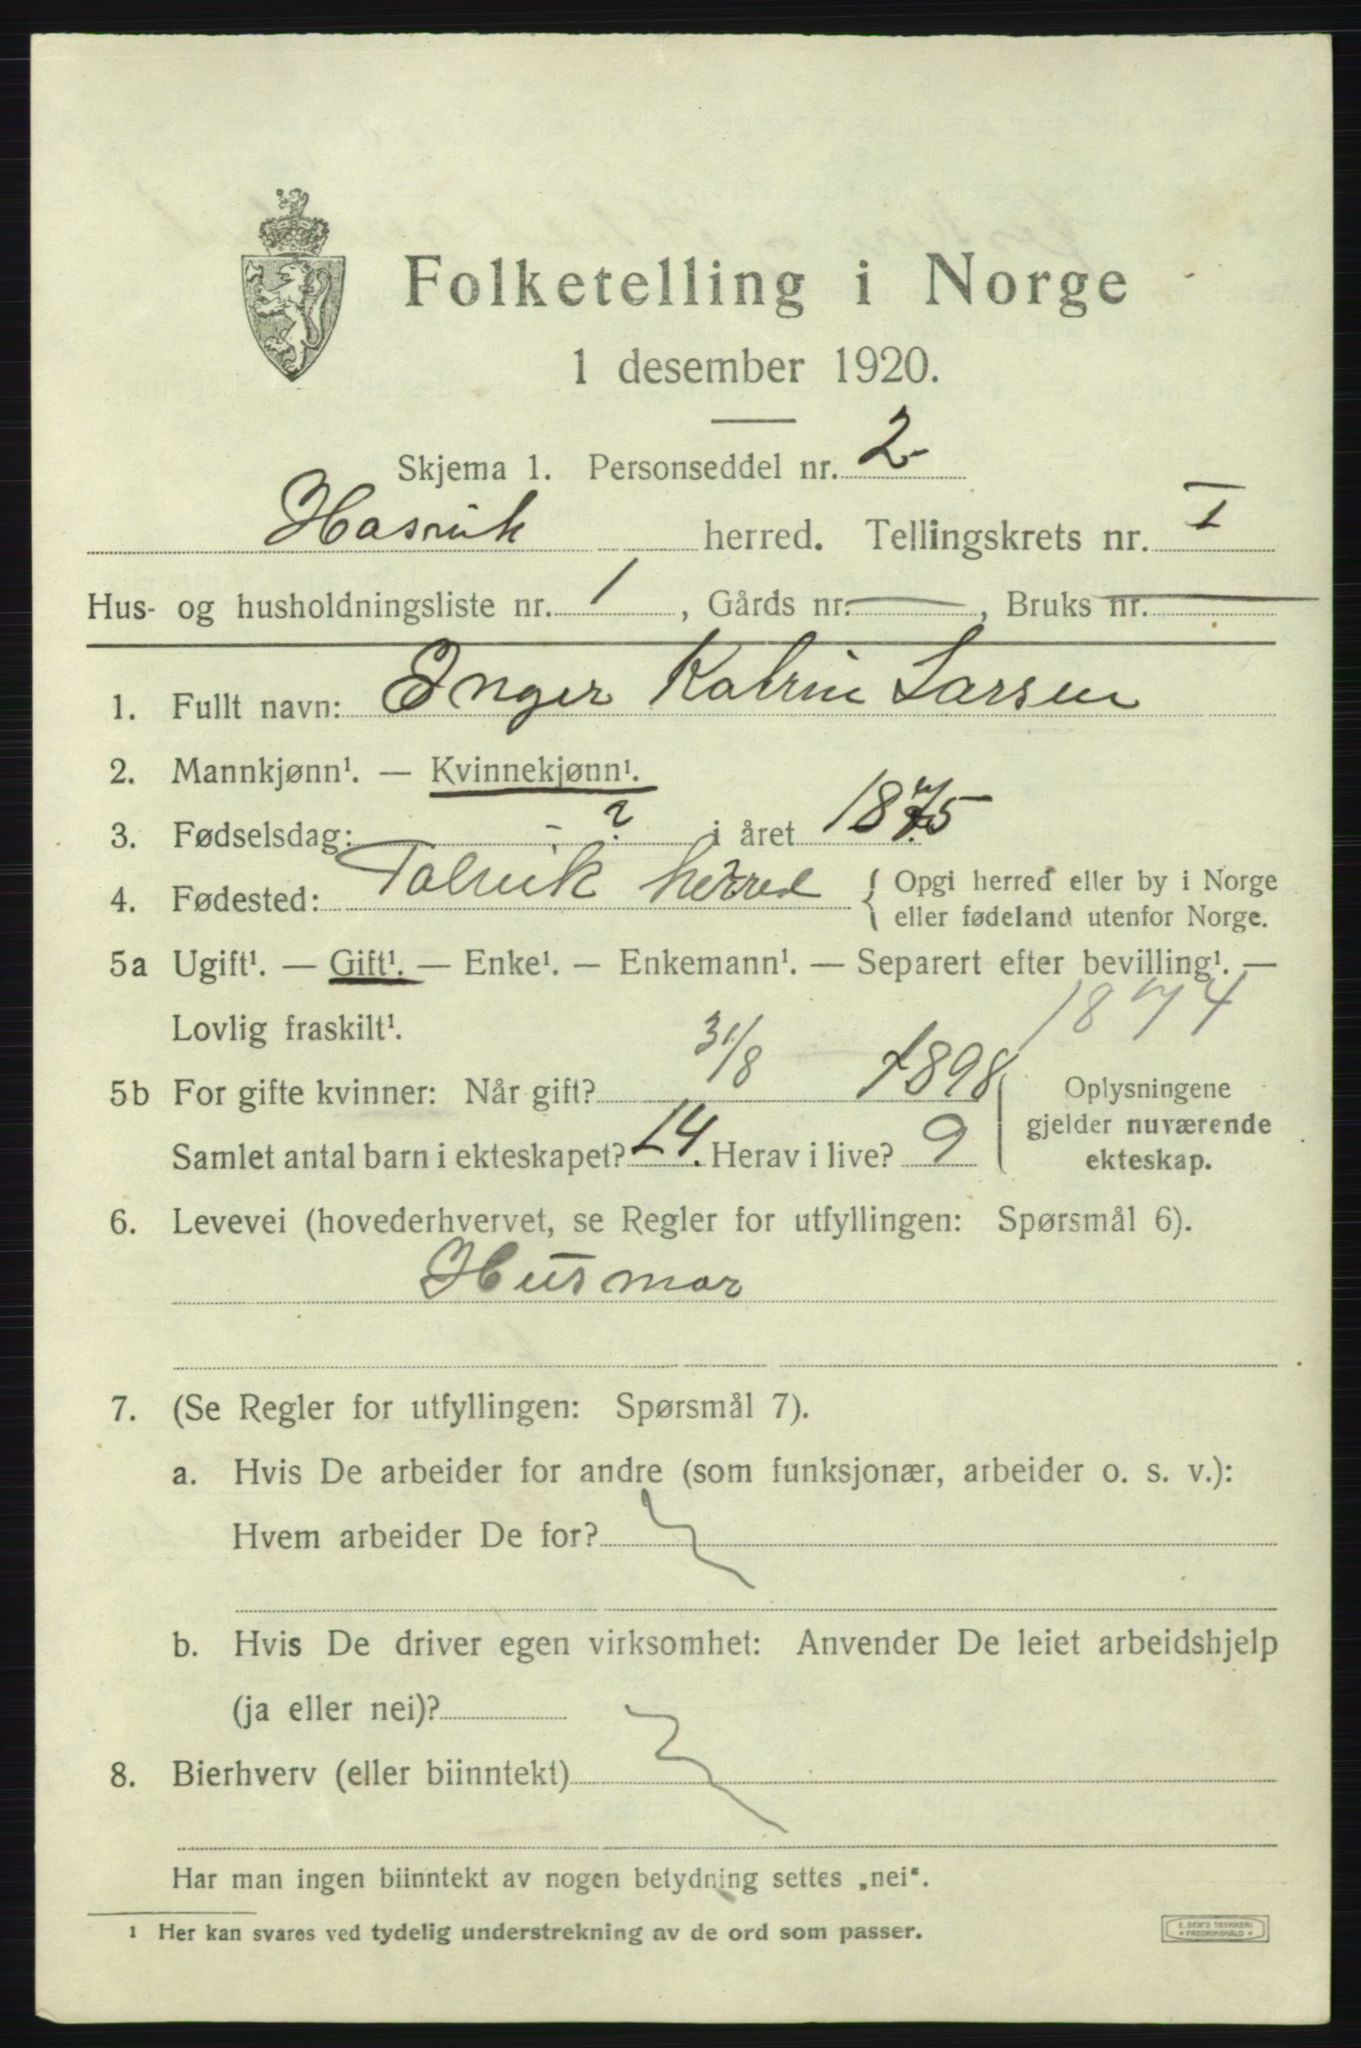 Folketelling i Norge
1 desember 1920.
Skjema 1. Personseddel nr. 2
Hasvik herred. Tellingskrets nr. I
Hus- og husholdningsliste nr. 1, Gårds nr. —, Bruks nr. —
1. Fullt navn: Inger Katrin Larsen
2. Mannkjønn¹. — Kvinnekjønn¹.
3. Fødselsdag: - ? i året 1875
4. Fødested: Talvik herred { Opgi herred eller by i Norge
eller fødeland utenfor Norge.
5a Ugift¹. — Gift¹. — Enke¹. — Enkemann¹. — Separert efter bevilling¹. —
Lovlig fraskilt¹. 1874
5b For gifte kvinner: Når gift? 31/8 1898 Oplysningene
gjelder nuværende
Samlet antal barn i ekteskapet? 14. Herav i live? 9 ekteskap.
6. Levevei (hovederhvervet, se Regler for utfyllingen: Spørsmål 6).
Husmor
7. (Se Regler for utfyllingen: Spørsmål 7).
a. Hvis De arbeider for andre (som funksjonær, arbeider o. s. v.):
Hvem arbeider De for?
b. Hvis De driver egen virksomhet: Anvender De leiet arbeidshjelp
(ja eller nei)?
8. Bierhverv (eller biinntekt)
Har man ingen biinntekt av nogen betydning settes „nei“.
1 Her kan svares ved tydelig understrekning av de ord som passer.
E. SEM'S TRYKKERI
FREDRIKSHALD